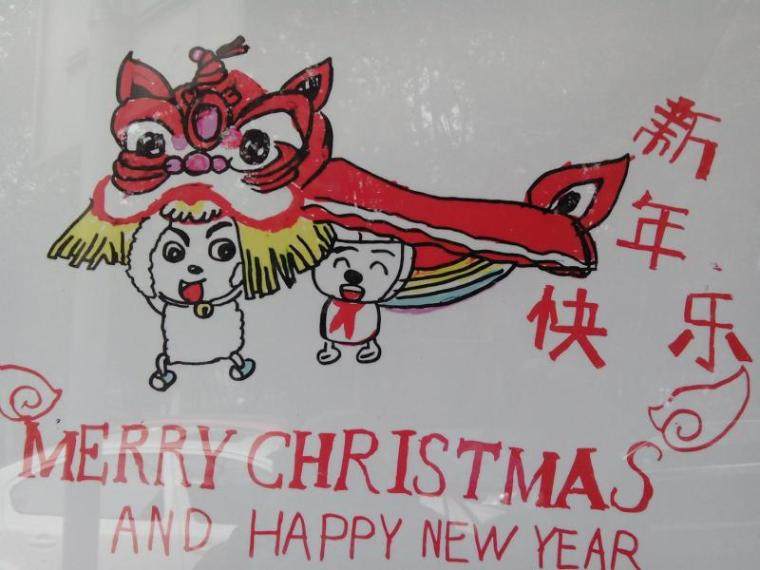 新年快乐
MERRY CHRISTMAS
AND HAPPY NEW YEAR